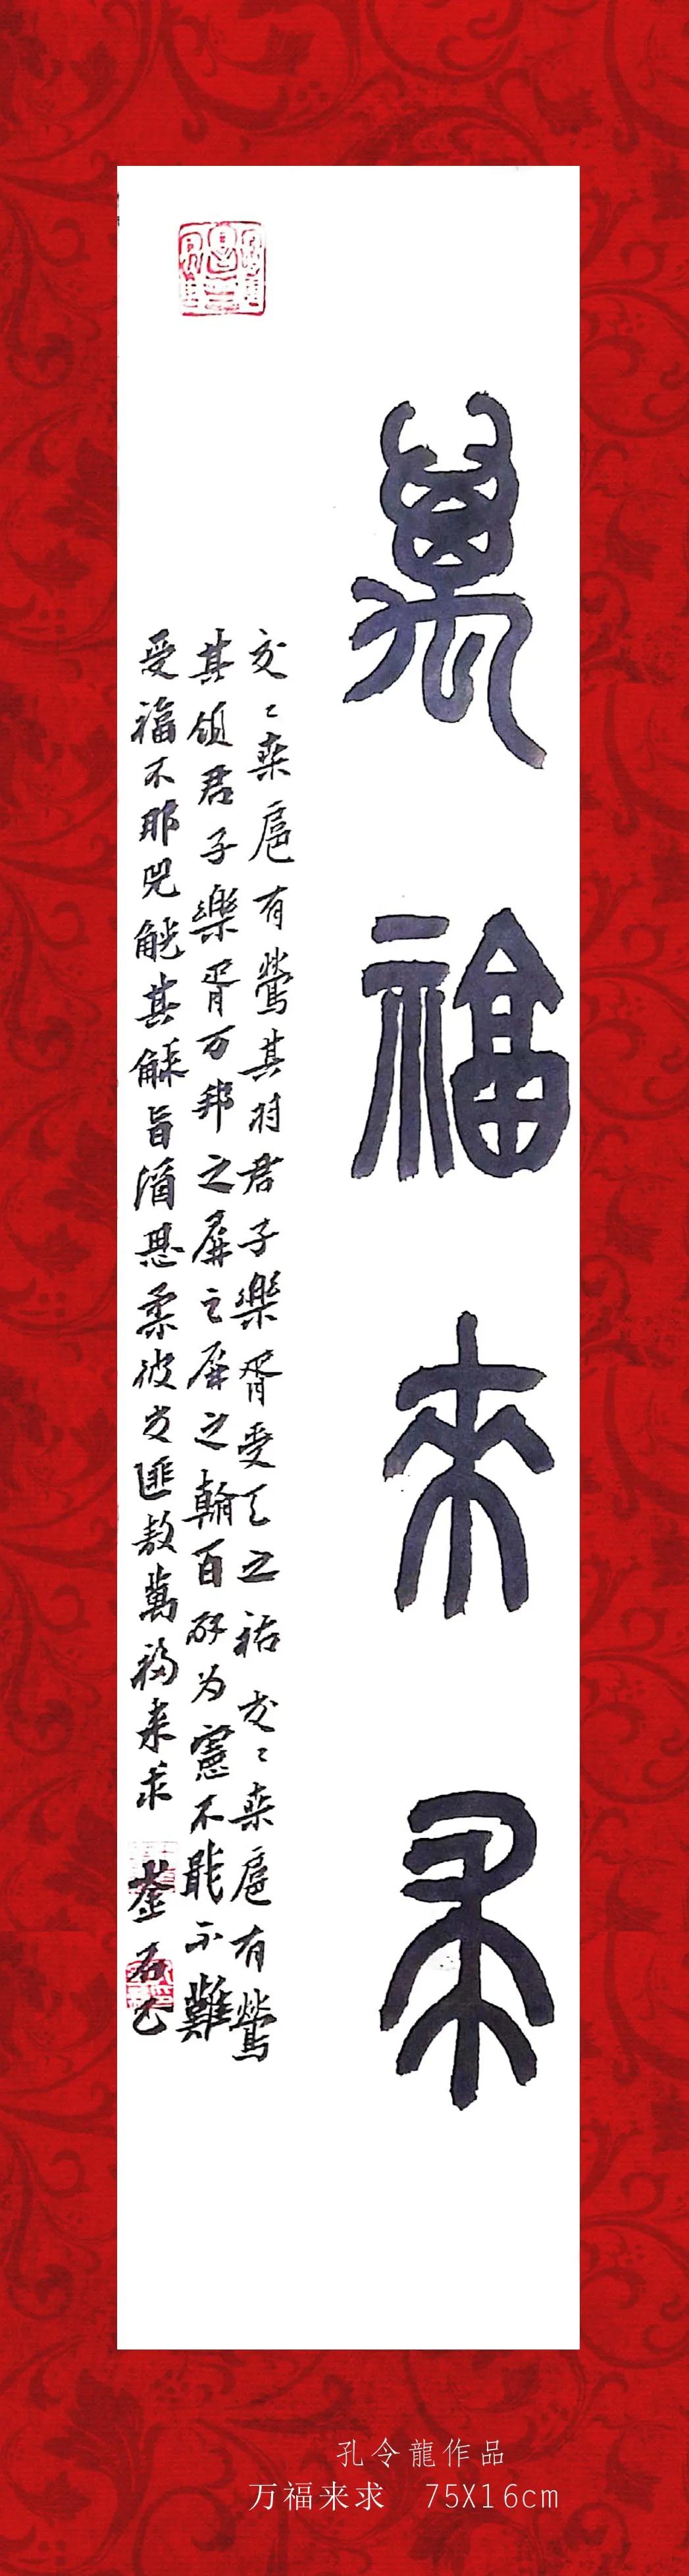 萬福來求
交〻桑扈有鶯其羽君子樂胥受天之祜交〻桑扈有鶯
其領君子樂胥万邦之屏之屏之翰百辟为憲不戢不難
受福不那兕觥其觩旨酒思柔彼交匪敖萬福来求
孔令龍作品
万福来求 75X16cm